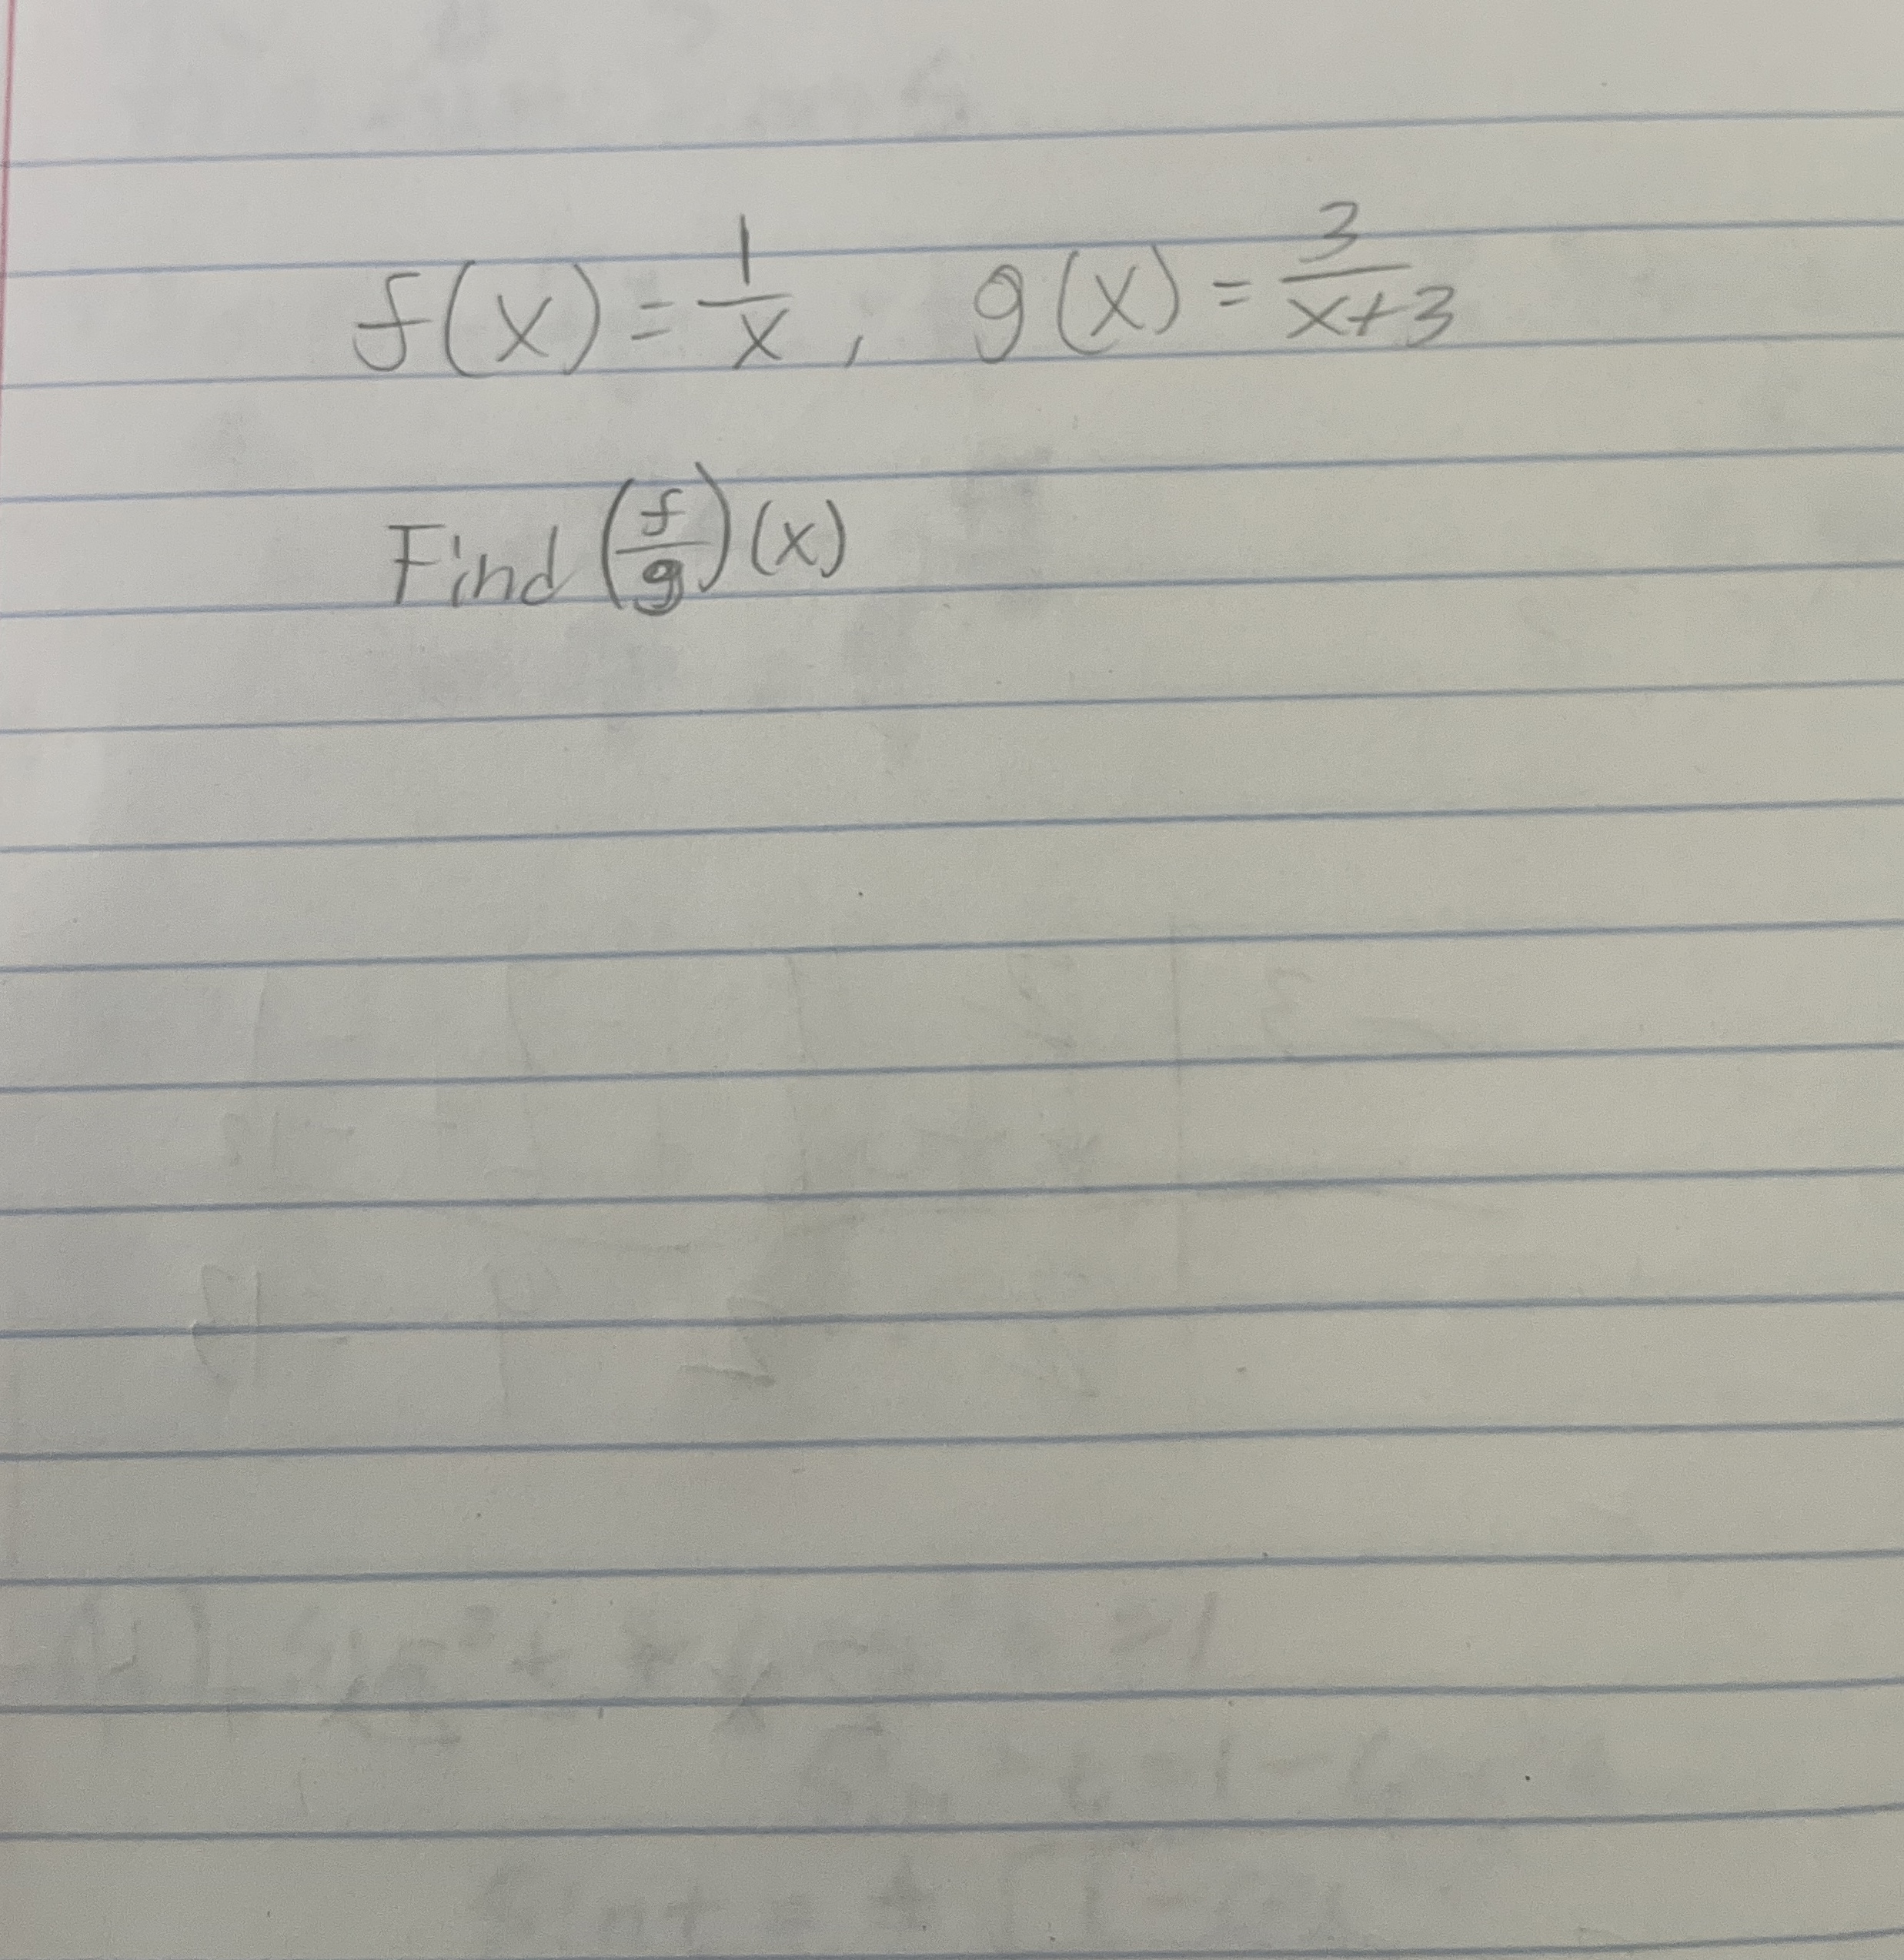 f(x) = 1/x, g(x) = 3/(x+3)
Find (f/g)(x)